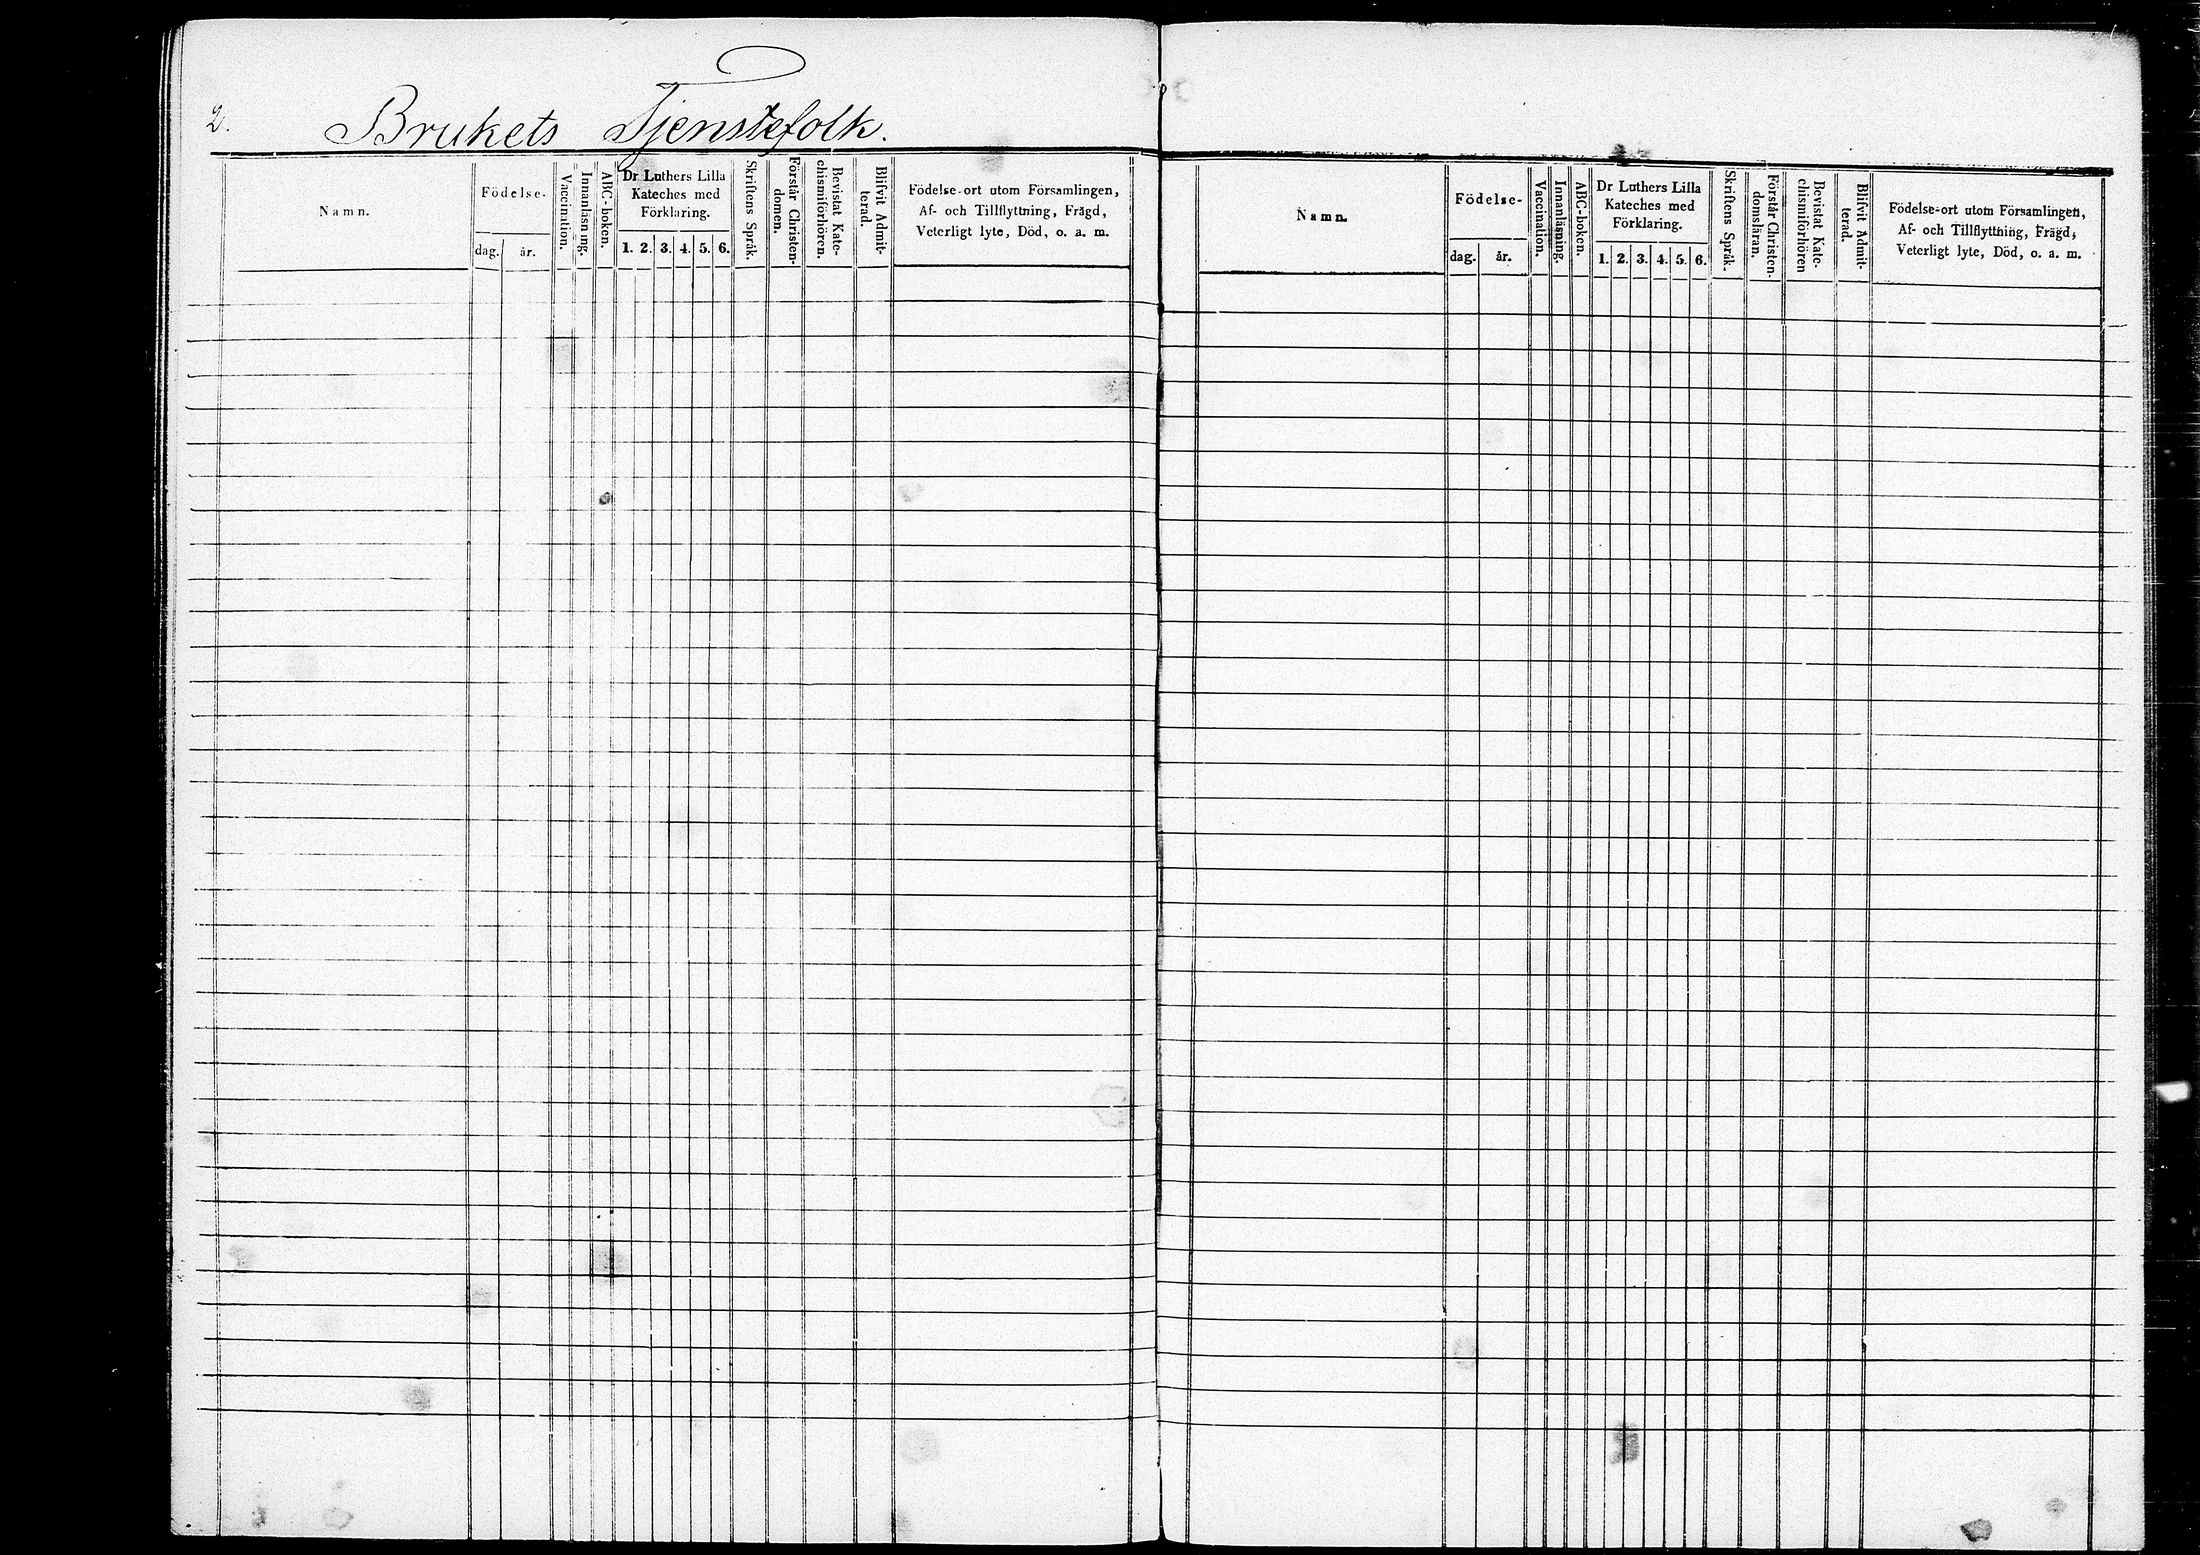 2.
Brukets Tjenstefolk.
Namn.
Födelse-
dag. år.
Vaccination.
Innanläsning.
ABC-boken.
Dr Luthers Lilla
Kateches med
Förklaring.
1. 2. 3. 4. 5. 6.
Skriftens Språk.
Förstår Christen-
domen.
Bevistat Kate-
chismiförhören.
Blifvit Admit-
terad.
Födelse-ort utom Församlingen,
Af- och Tillflyttning, Frägd,
Veterligt lyte, Död, o. a. m.
Namn.
Födelse-
dag. år.
Vaccination.
Innanläsning.
ABC-boken.
Dr Luthers Lilla
Kateches med
Förklaring.
1. 2. 3. 4. 5. 6.
Skriftens Språk.
Förstår Christen-
domsläran.
Bevistat Kate-
chismiförhören
Blifvit Admit-
terad.
Födelse-ort utom Församlingen,
Af- och Tillflyttning, Frägd,
Veterligt lyte, Död, o. a. m.